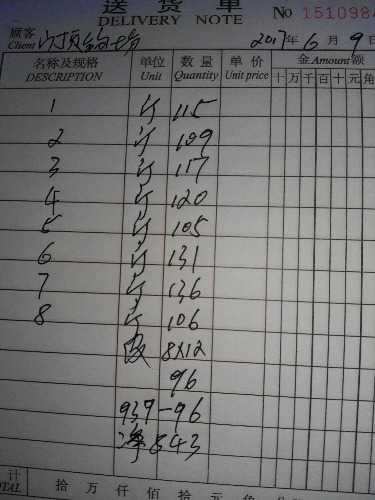 送货单
DELIVERY NOTE No 1510984
顾客
Client
2017年6月9日
名称及规格 单位 数量 单价 金Amount额
DESCRIPTION Unit Quantity Unit price 十万千百十元角
1 斤 115
2 斤 109
3 斤 117
4 斤 120
5 斤 105
6 斤 131
7 斤 136
8 斤 106
8×12
96
939-96
净843
计
TOTAL 拾万仟佰拾元角